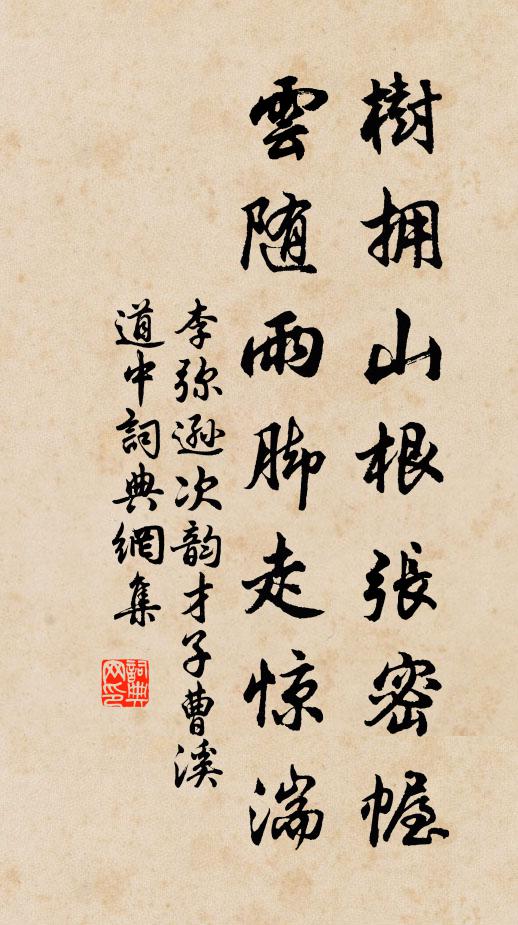 樹拥山根張密幄
雲随雨脚走惊湍
李弥遜次韵才子曹溪
道中詞典網集
詞典
网印